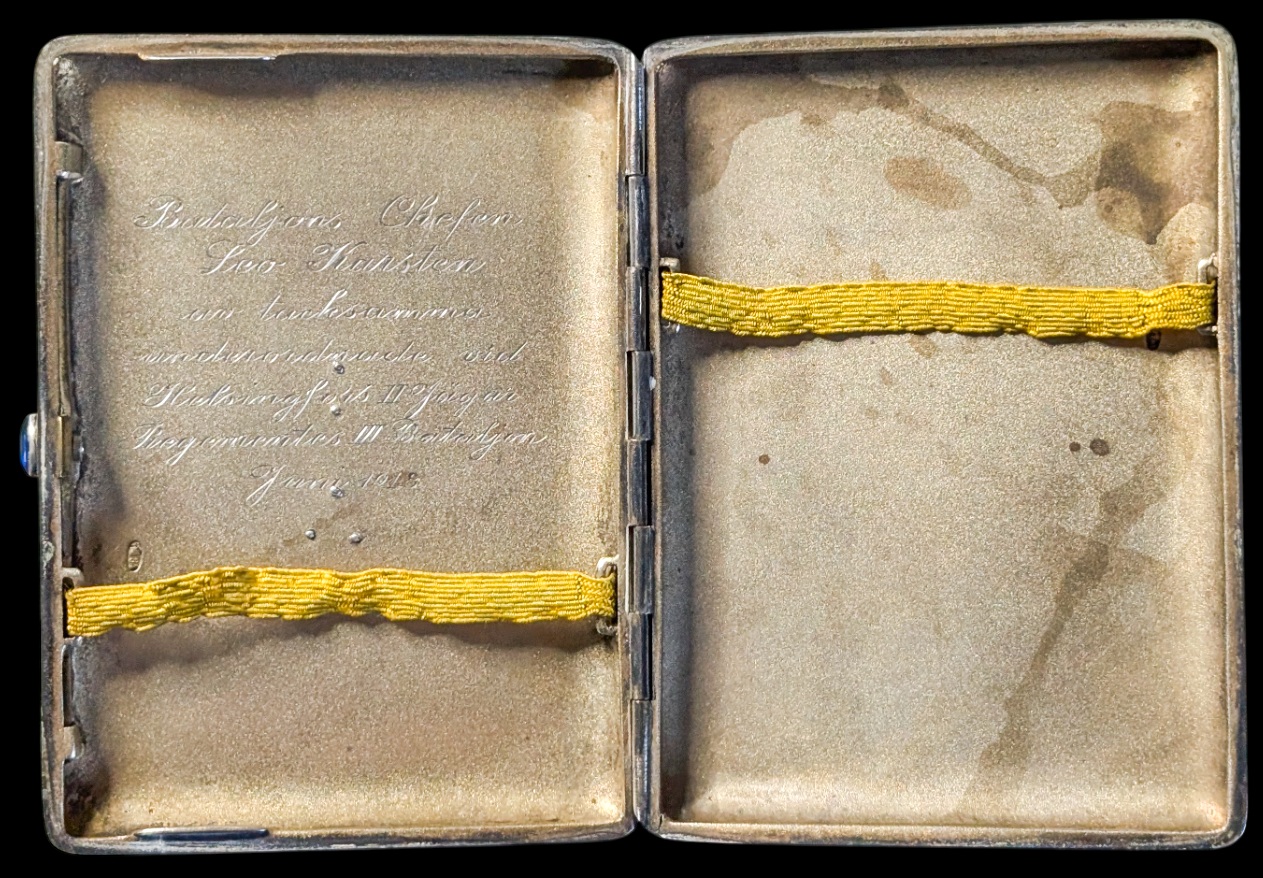 Bataljons Chefen
Leo Kunsten
av tacksamma
underordnade vid
Helsingfors II Jägar
Regementes III Bataljon
Juni 1918